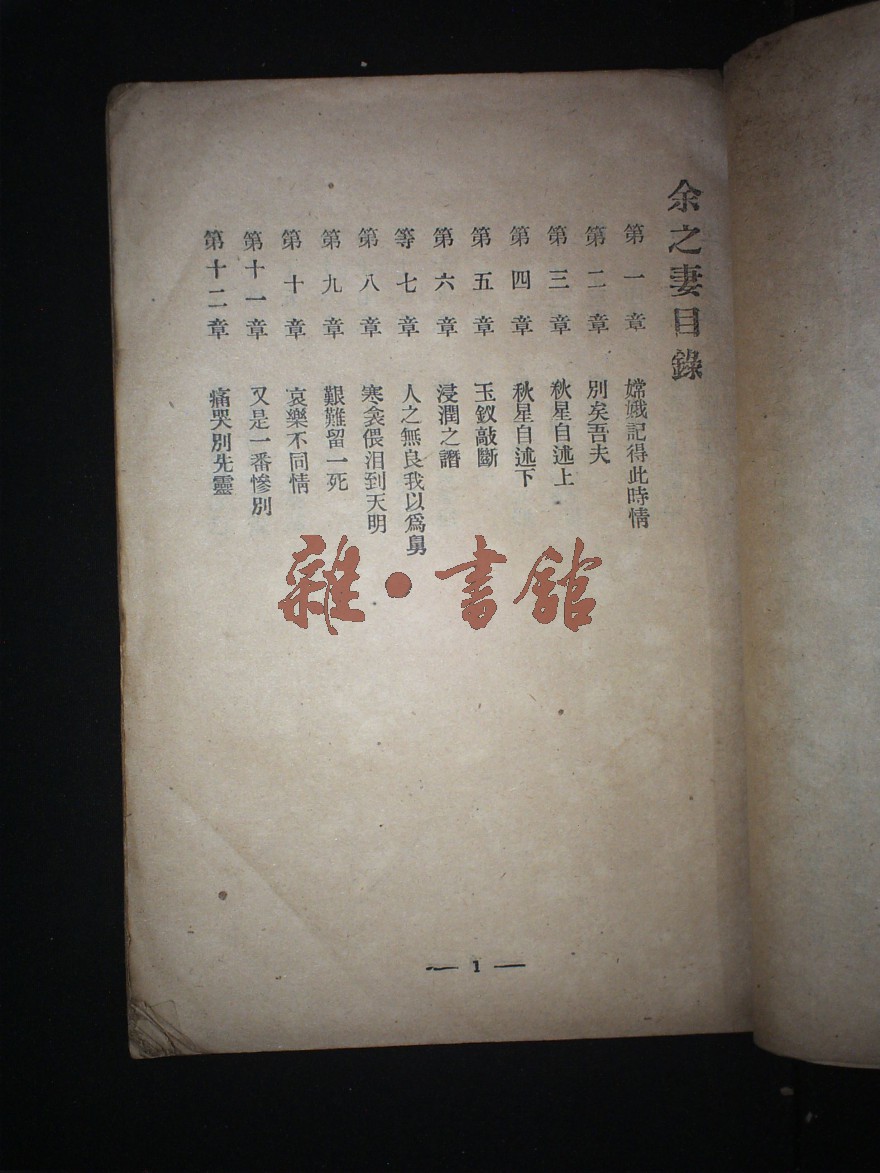 余之妻目錄
第一章 嫦娥記得此時情
第二章 別矣吾夫
第三章 秋星自述上
第四章 秋星自述下
第五章 玉釵敲斷
第六章 浸潤之譖
等七章 人之無良我以爲舅
第八章 寒衾偎泪到天明
第九章 艱難留一死
第十章 哀樂不同情
第十一章 又是一番慘別
第十二章 痛哭別先靈
雜·書館
— 1 —